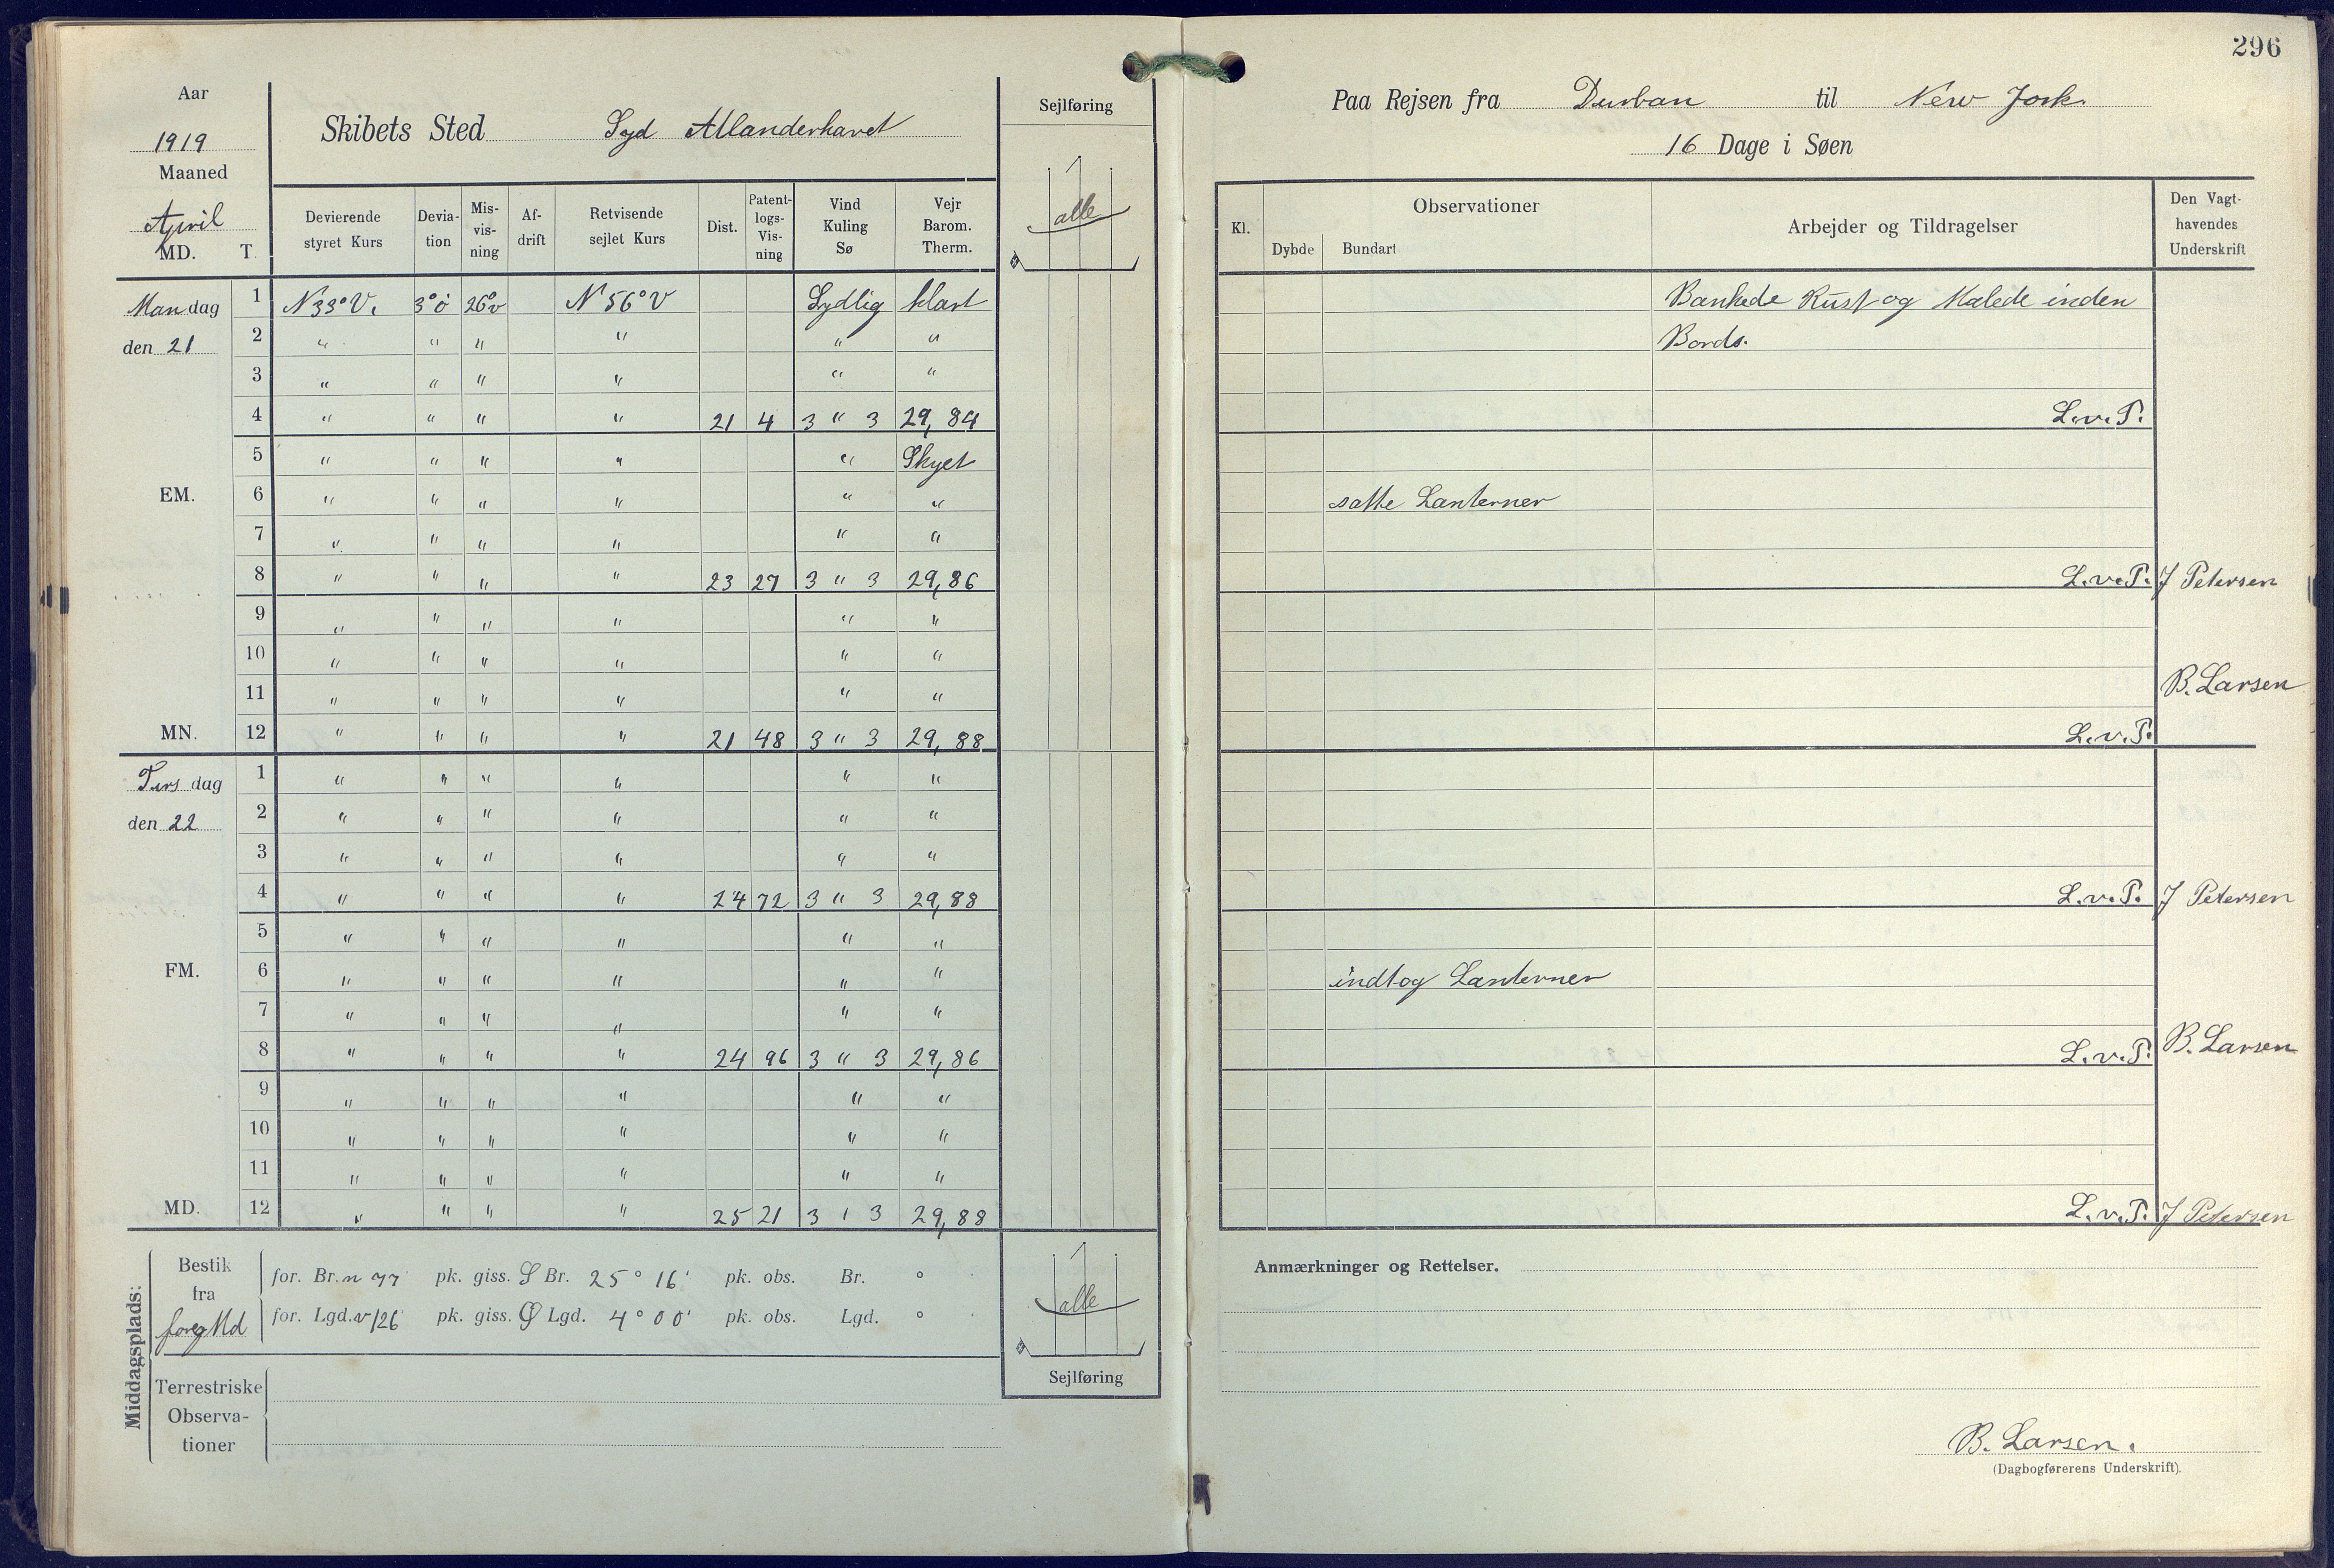 296
Aar
1919
Maaned
April
MD. T.
Skibets Sted Syd Atlanderhavet
Sejlføring
alle
Paa Rejsen fra Durban til New Jork.
16 Dage i Søen
Devierende styret Kurs | Devia-tion | Mis-vis-ning | Af-drift | Retvisende sejlet Kurs | Dist. | Patent-logs-Vis-ning | Vind Kuling Sø | Vejr Barom. Therm.
Kl. | Observationer | Dybde | Bundart | Arbejder og Tildragelser | Den Vagt-havendes Underskrift
Mandag 1 N33°V. 3°ö 26°v N56°V Sydlig klart Bankede Rust og Malede inden
den 21 2 " " " " " " Bords.
3 " " " " " "
4 " " " " 21 4 3 " 3 29,84 L.v.P.
5 " " " " " Skyet
EM. 6 " " " " " " satte Lanterner
7 " " " " " "
8 " " " " 23 27 3 " 3 29,86 L.v.P. J Petersen
9 " " " " " "
10 " " " " " "
11 " " " " " " B. Larsen
MN. 12 " " " " 21 48 3 " 3 29,88 L.v.P.
Tirsdag 1 " " " " " "
den 22 2 " " " " " "
3 " " " " " "
4 " " " " 24 72 3 " 3 29,88 L.v.P. J Petersen
5 " " " " " "
FM. 6 " " " " " " indtog Lanterner
7 " " " " " "
8 " " " " 24 96 3 " 3 29,86 L.v.P. B. Larsen
9 " " " " " "
10 " " " " " "
11 " " " " " "
MD. 12 " " " " 25 21 3 ı 3 29,88 L.v.P. J Petersen
Middagsplads:
Bestik fra foreg Md
for. Br. n 77' pk. giss. S Br. 25° 16' pk. obs. Br. °
for. Lgd. v 126 pk. giss. Ø Lgd. 4° 00' pk. obs. Lgd. °
Terrestriske
Observa-
tioner
alle
Sejlføring
Anmærkninger og Rettelser.
B. Larsen.
(Dagbogførerens Underskrift).